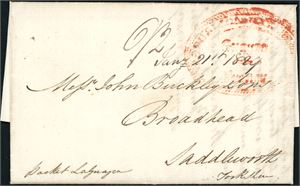 Jany 21st
Messrs John Buckley & Sons
Broadhead
Saddleworth
Yorkshire
Packet Laguayra